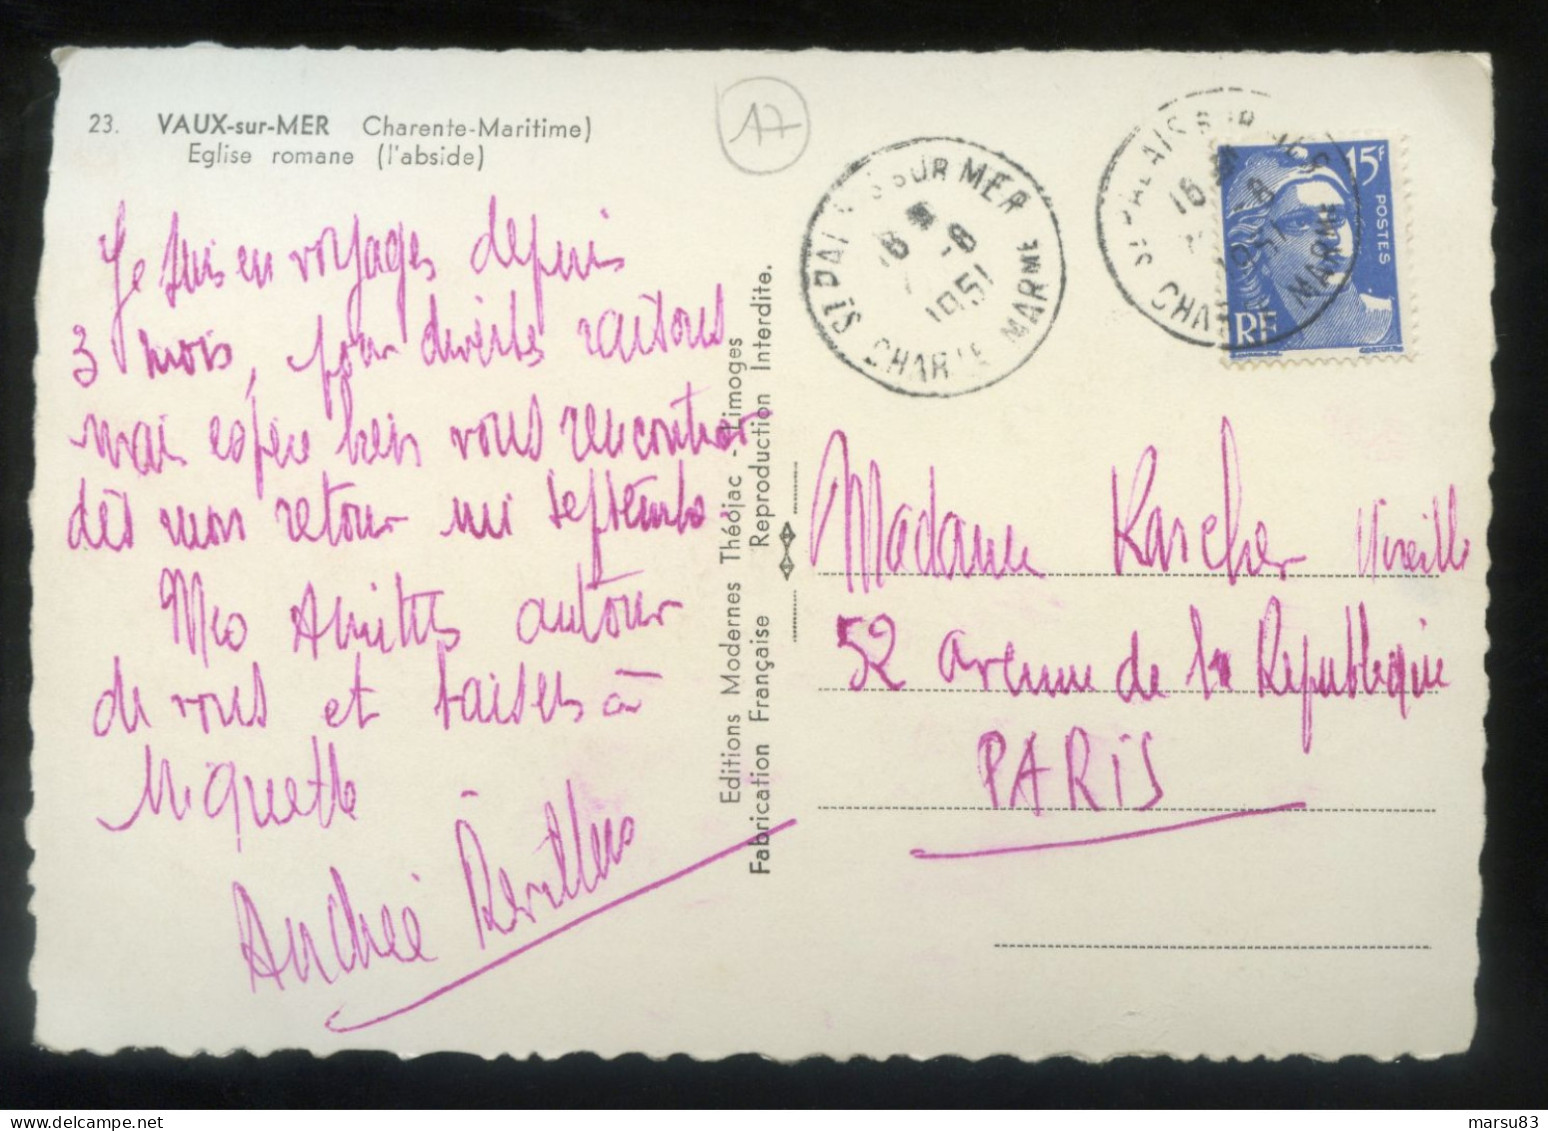 23. VAUX-sur-MER Charente-Maritime)
Eglise romane (l'abside)
17
ST PALAIS SUR MER
16 -8
1951
CHARTE MARME
ST PALAIS SUR MER
16 -8
1951
CHARTE MARME
15F
POSTES
RF
Je suis en voyages depuis
3 mois, pour diverses raisons
mais espère bien vous rencontrer
dès mon retour mi septembre
Mes Amitiés autour
de vous et baisers à
Miquette
Andrée
Editions Modernes Théojac - Limoges
Fabrication Française Reproduction Interdite.
Madame Karcher Mireille
52 avenue de la République
PARIS
marsu83